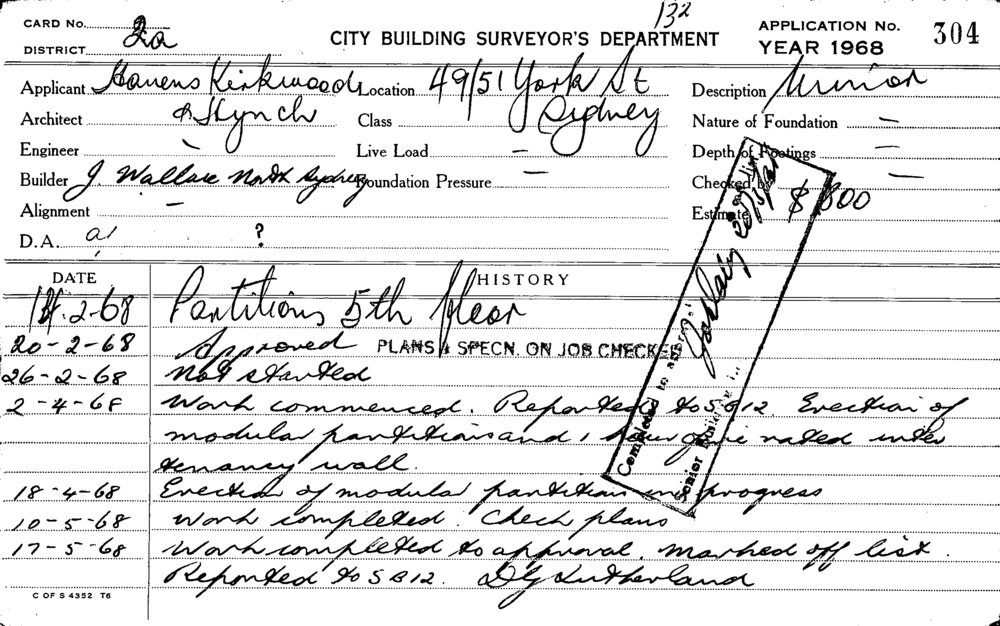 132
CARD No.
DISTRICT 2a
CITY BUILDING SURVEYOR'S DEPARTMENT
APPLICATION No. 304
YEAR 1968
Applicant Havens Kirkwood Location 49/51 York St Description Minor
Architect & Hynch Class Sydney Nature of Foundation —
Engineer - Live Load — Depth of Footings —
Builder J. Wallace North Sydney Foundation Pressure — Checked by —
Alignment — Estimate $ 800
D.A. a1 ?
DATE HISTORY
2-68 Partitions 5th floor
20-2-68 Approved PLANS & SPECN. ON JOB CHECKED
26-2-68 Not started
2-4-68 Work commenced. Reported to SB12. Erection of
modular partitions and 1 hour fire rated inter
tenancy wall.
18-4-68 Erection of modular partition in progress
10-5-68 Work completed. Check plans
17-5-68 Work completed to approval. marked off list.
Reported to SB12. DG Sutherland
Completed to
Senior Building
C OF S 4352 T6